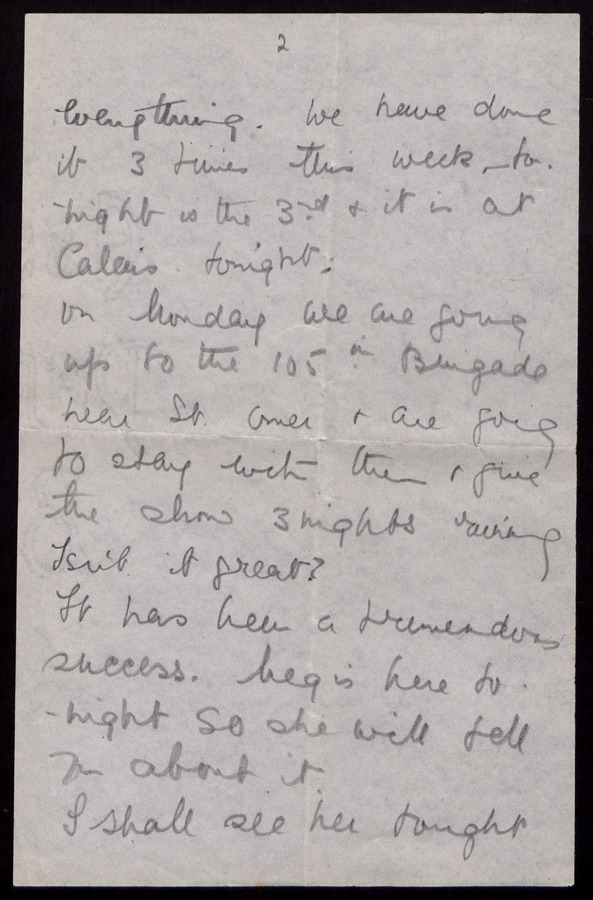 2
everything. We have done
it 3 times this week, to-
-night is the 3rd & it is at
Calais tonight.
On Monday we are going
up to the 105th Brigade
near St. Omer & are going
to stay with them & give
the show 3 nights running
Isn't it great?
It has been a tremendous
success. Meg is here to-
-night so she will tell
you about it.
I shall see her tonight